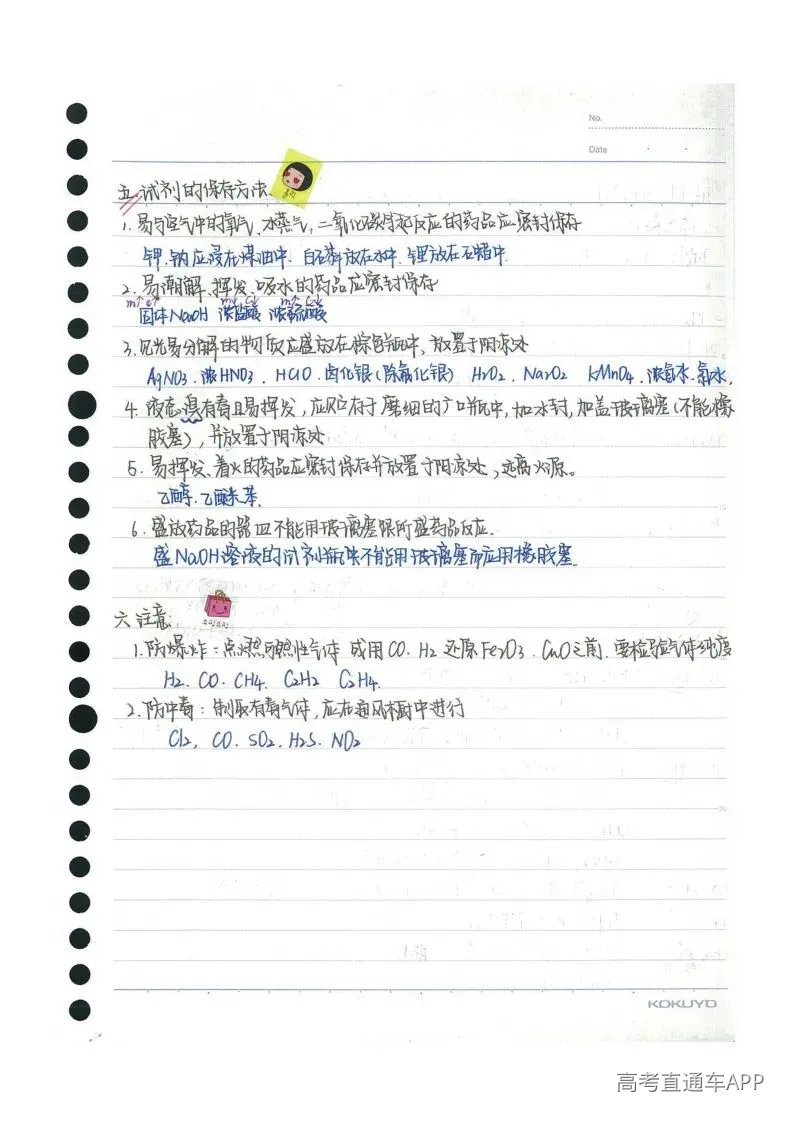 No.
Date
五.试剂的保存方法.
1.易与空气中的氧气、水蒸气,二氧化碳等起反应的药品应密封保存
钾.钠应浸在煤油中. 白磷放在水中. 锂放在石蜡中.
2.易潮解、挥发、吸水的药品应密封保存
m↑ c↑ m↓ c↓ m↑ c↓
固体NaOH 浓盐酸 浓硫酸
3.见光易分解的物质应盛放在棕色瓶中,放置于阴凉处
AgNO3.浓HNO3.HClO.卤化银(除氟化银) H2O2. Na2O2 KMnO4.浓氨水.氯水.
4.液态溴有毒且易挥发,应贮存于磨细的广口瓶中,加水封,加盖玻璃塞(不能橡
胶塞),并放置于阴凉处
5.易挥发、着火的药品应密封保存并放置于阴凉处,远离火源。
乙醇.乙醚.苯.
6.盛放药品的器皿不能用玻璃塞跟所盛药品反应.
盛NaOH溶液的试剂瓶不能用玻璃塞而应用橡胶塞.
六.注意.
1.防爆炸:点燃可燃性气体 或用CO.H2还原Fe2O3.CuO之前.要检验气体纯度
H2.CO.CH4. C2H2 C2H4.
2.防中毒:制取有毒气体,应在通风橱中进行
Cl2, CO.SO2.H2S.NO2
KOKUYO
高考直通车APP